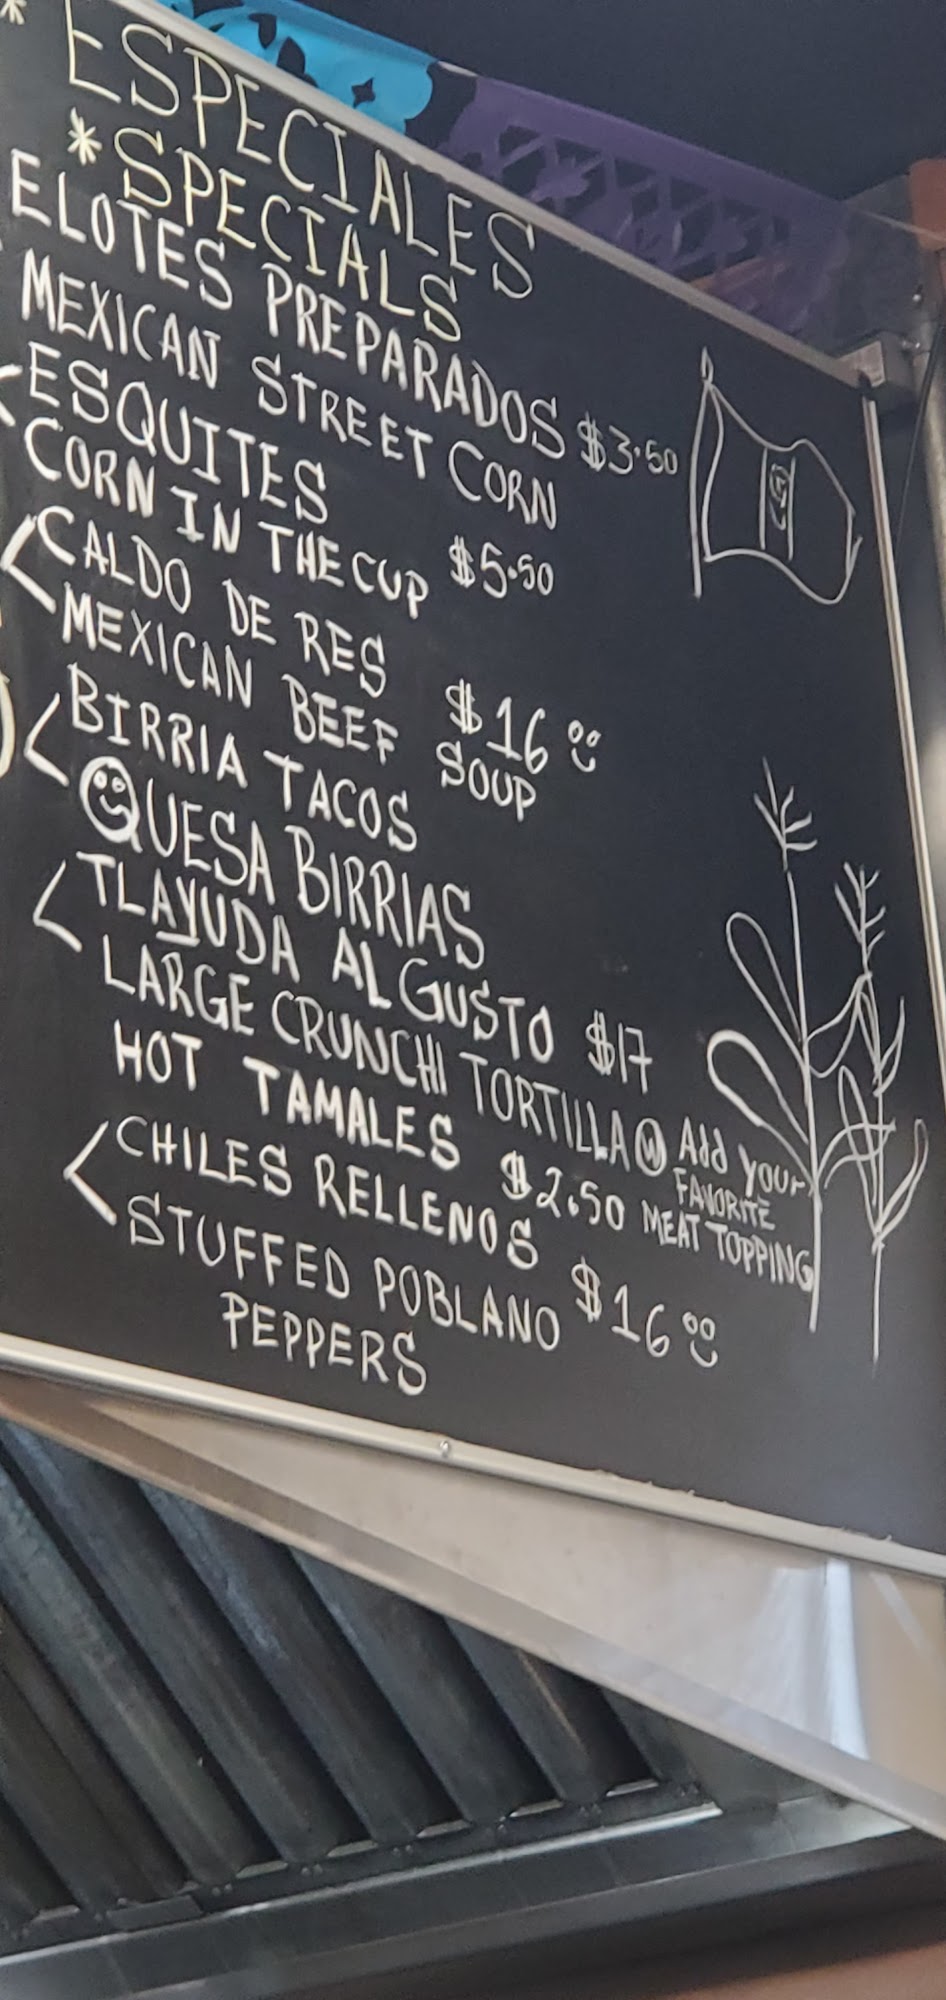 * ESPECIALES
* SPECIALS
ELOTES PREPARADOS $3.50
MEXICAN STREET CORN
ESQUITES
CORN IN THE CUP $5.50
CALDO DE RES $16
MEXICAN BEEF SOUP
BIRRIA TACOS
QUESA BIRRIAS
TLAYUDA AL GUSTO $17
LARGE CRUNCHI TORTILLA W Add your
FAVORITE
MEAT TOPPING
HOT TAMALES $2.50
CHILES RELLENOS $16
STUFFED POBLANO
PEPPERS